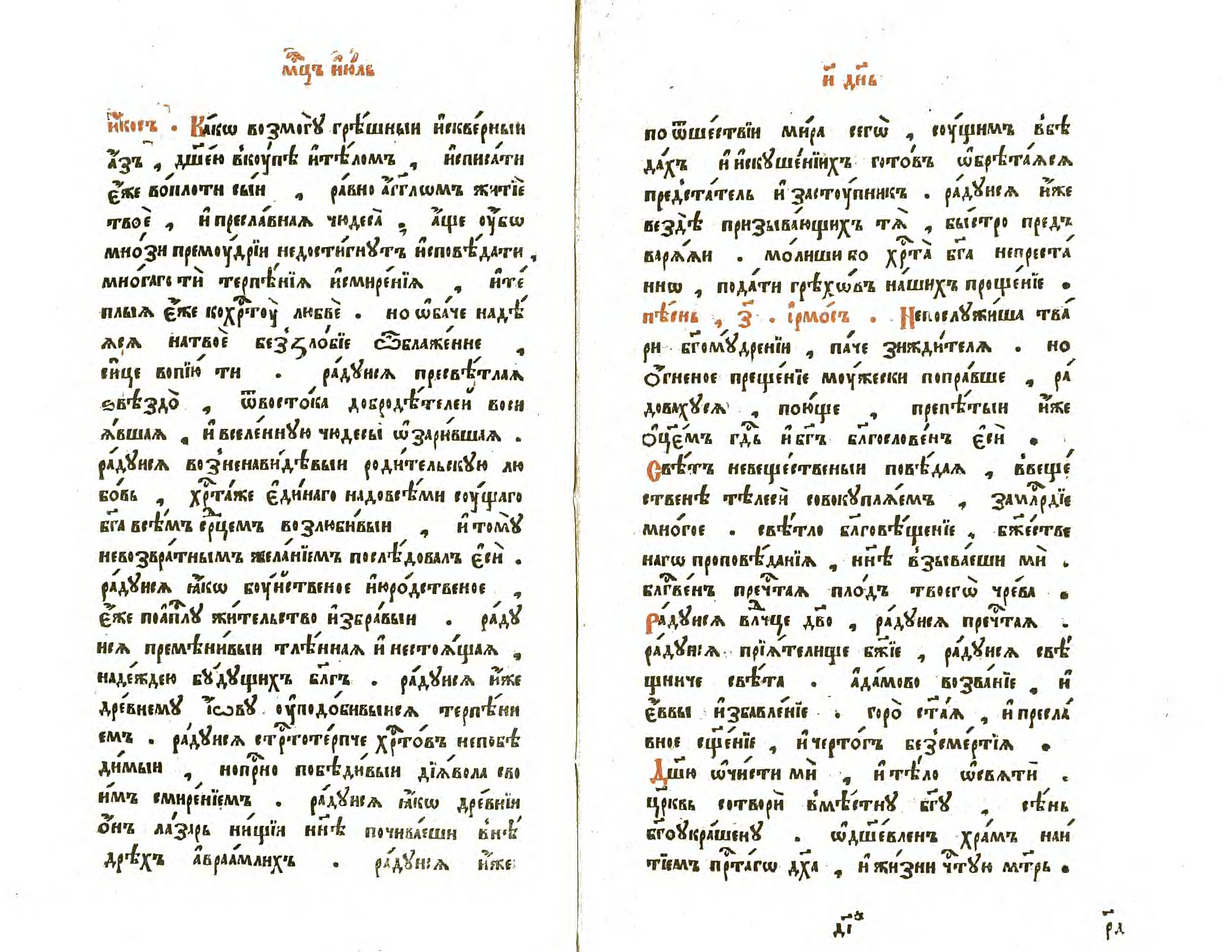 мⷭ҇цъ і҆ю́ль
и҃ дн҃ь
И҆́косъ . Ка́кѡ возмогꙋ̀ грѣ́шныи и҆скве́рныи
а҆́зъ , дш҃е́ю вкꙋ́пѣ итѣ́ломъ , и҆списа́ти
є҆́же воплоти сы́и , ра́вно а҆́гг҃лѡмъ житїѐ
твоѐ , и҆ пресла́вная чюдеса̀ , а҆́ще оу҆́бѡ
мно́зи премоу́дрїи недости́гнꙋтъ и҆спове́дати ,
мно́гаго ти̑ терпѣ́нїѧ и҆смире́нїѧ , и҆те́
плыѧ є҆́же кохрⷭ҇тоу̀ любвѐ . но ѡ҆ба́че надѣ́
ѧсѧ натвоѐ беззло́бїе ѿблаже́нне ,
си́це вопїю̀ ти . ра́дꙋисѧ пресвѣ́тлаѧ
ѕвѣздо̀ , ѿвосто́ка добродѣ́телеи воси
ѧ́вшаѧ , и҆ вселе́ннꙋю чюдесы̀ ѡ҆зари́вшаѧ .
ра́дꙋисѧ возненави́дѣвыи роди́тельскꙋю лю
бо́вь , хрⷭ҇та́же є҆ди́наго надовсѣ́ми сꙋ́щаго
бг҃а всѣ́мъ се́рдцемъ возлюби́выи , и҆ томꙋ̀
невозвра́тнымъ жела́нїемъ послѣ́довалъ є҆сѝ .
ра́дꙋисѧ ꙗ҆́кѡ боу́йственое и҆юро́дственое ,
є҆́же поапⷭ҇лꙋ жи́тельство и҆збра́выи . ра́дꙋ
исѧ премѣни́выи тлѣ́ннаѧ и҆ нестоѧ́щаѧ ,
наде́ждею бꙋ́дꙋщихъ бл҃гъ . ра́дꙋисѧ и҆́же
дре́внемꙋ і҆́ѡвꙋ оу҆подо́бивыисѧ терпѣ́ни
емъ . ра́дꙋисѧ стрⷭ҇тоте́рпче хрⷭ҇то́въ непобѣ
ди́мыи , нопрⷭ҇но побѣди́выи дїѧ́вола сво
и́мъ смире́нїемъ . ра́дꙋисѧ ꙗ҆́кѡ дре́внїи
о҆́нъ ла́зарь ни́щїи нн҃ѣ почива́еши внѣ́
дрѣхъ а҆враа́млихъ . ра́дꙋисѧ и҆́же
по ѿше́ствїи ми́ра сегѡ̀ , сꙋ́щимъ вбѣ
да́хъ и҆ и҆скꙋше́нїихъ гото́въ ѡ҆брѣта́ѧсѧ
предста́тель и҆ застꙋ́пникъ . ра́дꙋисѧ и҆́же
вездѣ̀ призыва́ющихъ тѧ̀ , бы́стро предъ
варѧ́ѧи . мо́лиши бо хрⷭ҇та̀ бг҃а непреста́
ннѡ , пода́ти грѣхѡ́въ на́шихъ проще́нїе .
пѣ́снь , з҃ . і҆рмо́съ . Непослꙋжи́ша тва́
ри бг҃омꙋ́дренїи , па́че зижди́телѧ . но
о҆́гненое преще́нїе моу́жески попра́вше , ра́
довахꙋсѧ , пою́ще , препѣ́тыи и҆́же
о҆ц҃е́мъ гдⷭ҇ь и҆ бг҃ъ благослове́нъ є҆сѝ .
Свѣ́тъ невеще́ственыи повѣ́даѧ , ввеще́
ственѣ тѣлесѝ совокꙋплѧ́емъ , замлⷭ҇рдїе
мно́гое . свѣ́тло бл҃говѣще́нїе , бж҃е́стве
нагѡ проповѣ́данїѧ , нн҃ѣ взыва́еши мѝ .
блгⷭ҇ве́нъ пречⷭ҇таѧ пло́дъ твоегѡ̀ чре́ва .
Ра́дꙋисѧ влⷣчце дв҃о , ра́дꙋисѧ пречⷭ҇таѧ .
ра́дꙋисѧ прїѧ́телище бж҃їе , ра́дꙋисѧ свѣ́
щниче свѣ́та . а҆да́мово возва́нїе , и҆
є҆́ввы и҆збавле́нїе . горо̀ ст҃а́ѧ , и҆ пресла́
вное сщ҃е́нїе , и҆ черто́гъ безсме́ртїѧ .
Дш҃ю ѡ҆чи́сти мѝ , и҆ тѣ́ло ѡ҆свѧтѝ .
цр҃квь сотворѝ вмѣ́стнꙋ бг҃ꙋ , сѣ́нь
бг҃оукра́шенꙋ . ѡ҆дш҃евле́нъ хра́мъ наи
тїемъ прⷭ҇та́гѡ дх҃а , и҆ жи́зни чⷭ҇тꙋю мт҃рь .
д҃і
р҃а